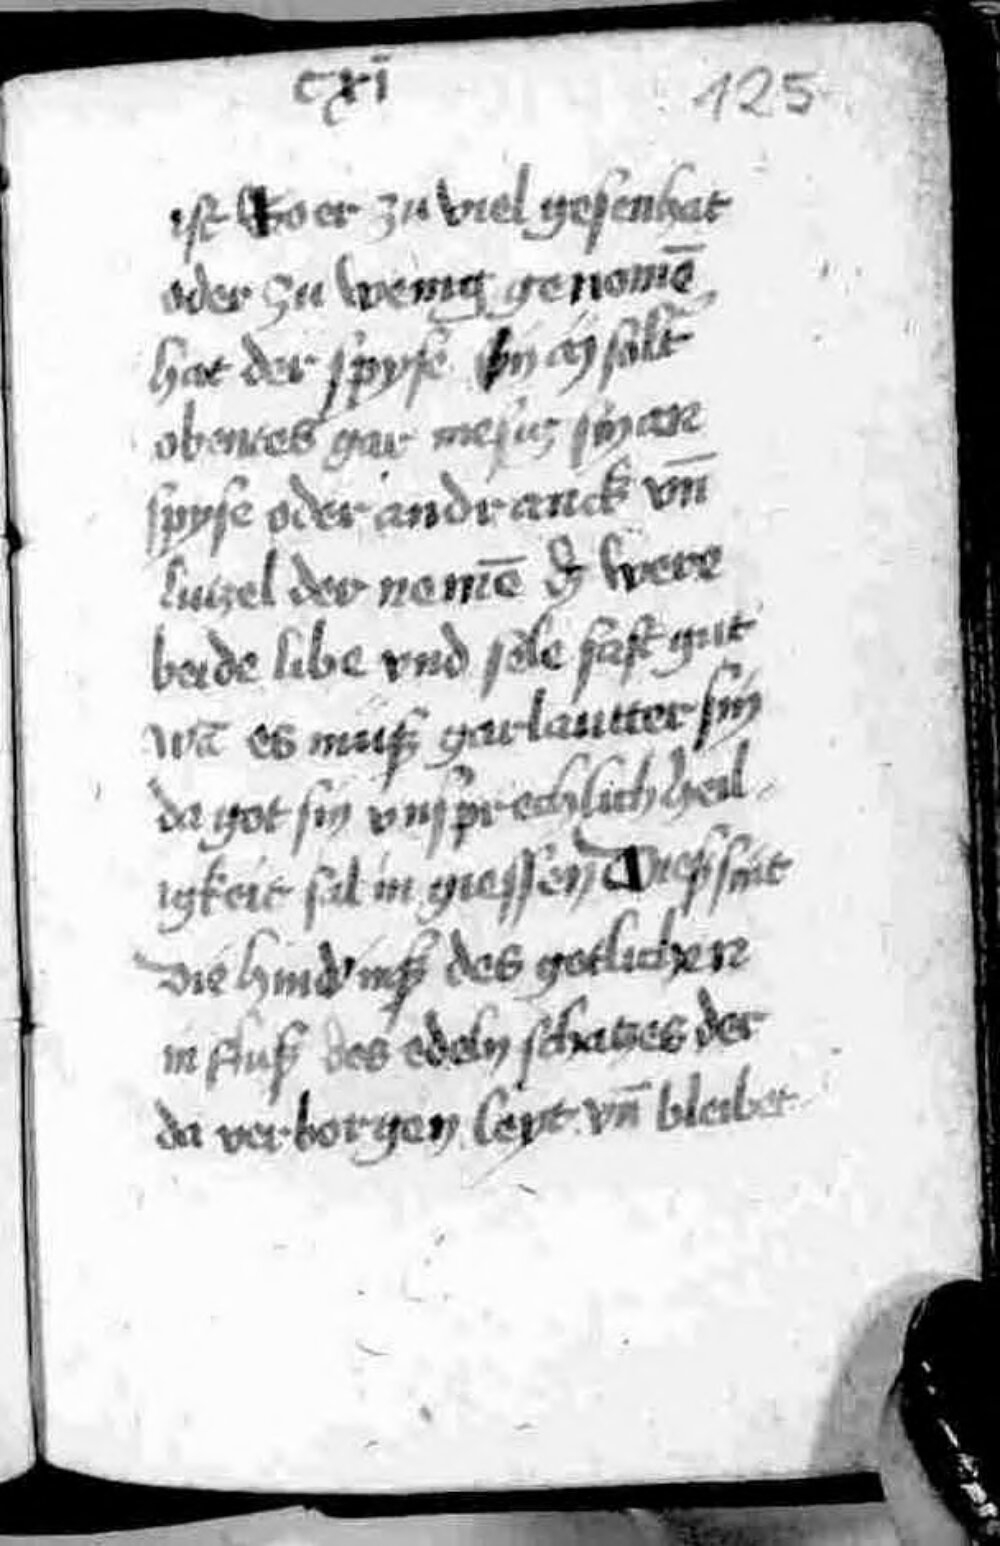 cxi 125
ist Wo er zu viel gesen hat
oder zu wenig genomē
hat der spyse
obentes gar mesig sin an
spyse oder an dranck vn̄
lutzel der nemē dz were
beide libe vnd sele fast gut
wā es müß gar lautter sin
da got sin vnsprechlich heil
igkeit sal in giessen Dieß sint
Die hind'niß des gotlichen
in fluß des edeln schatzes der
da verborgen leyt vn̄ bleibet